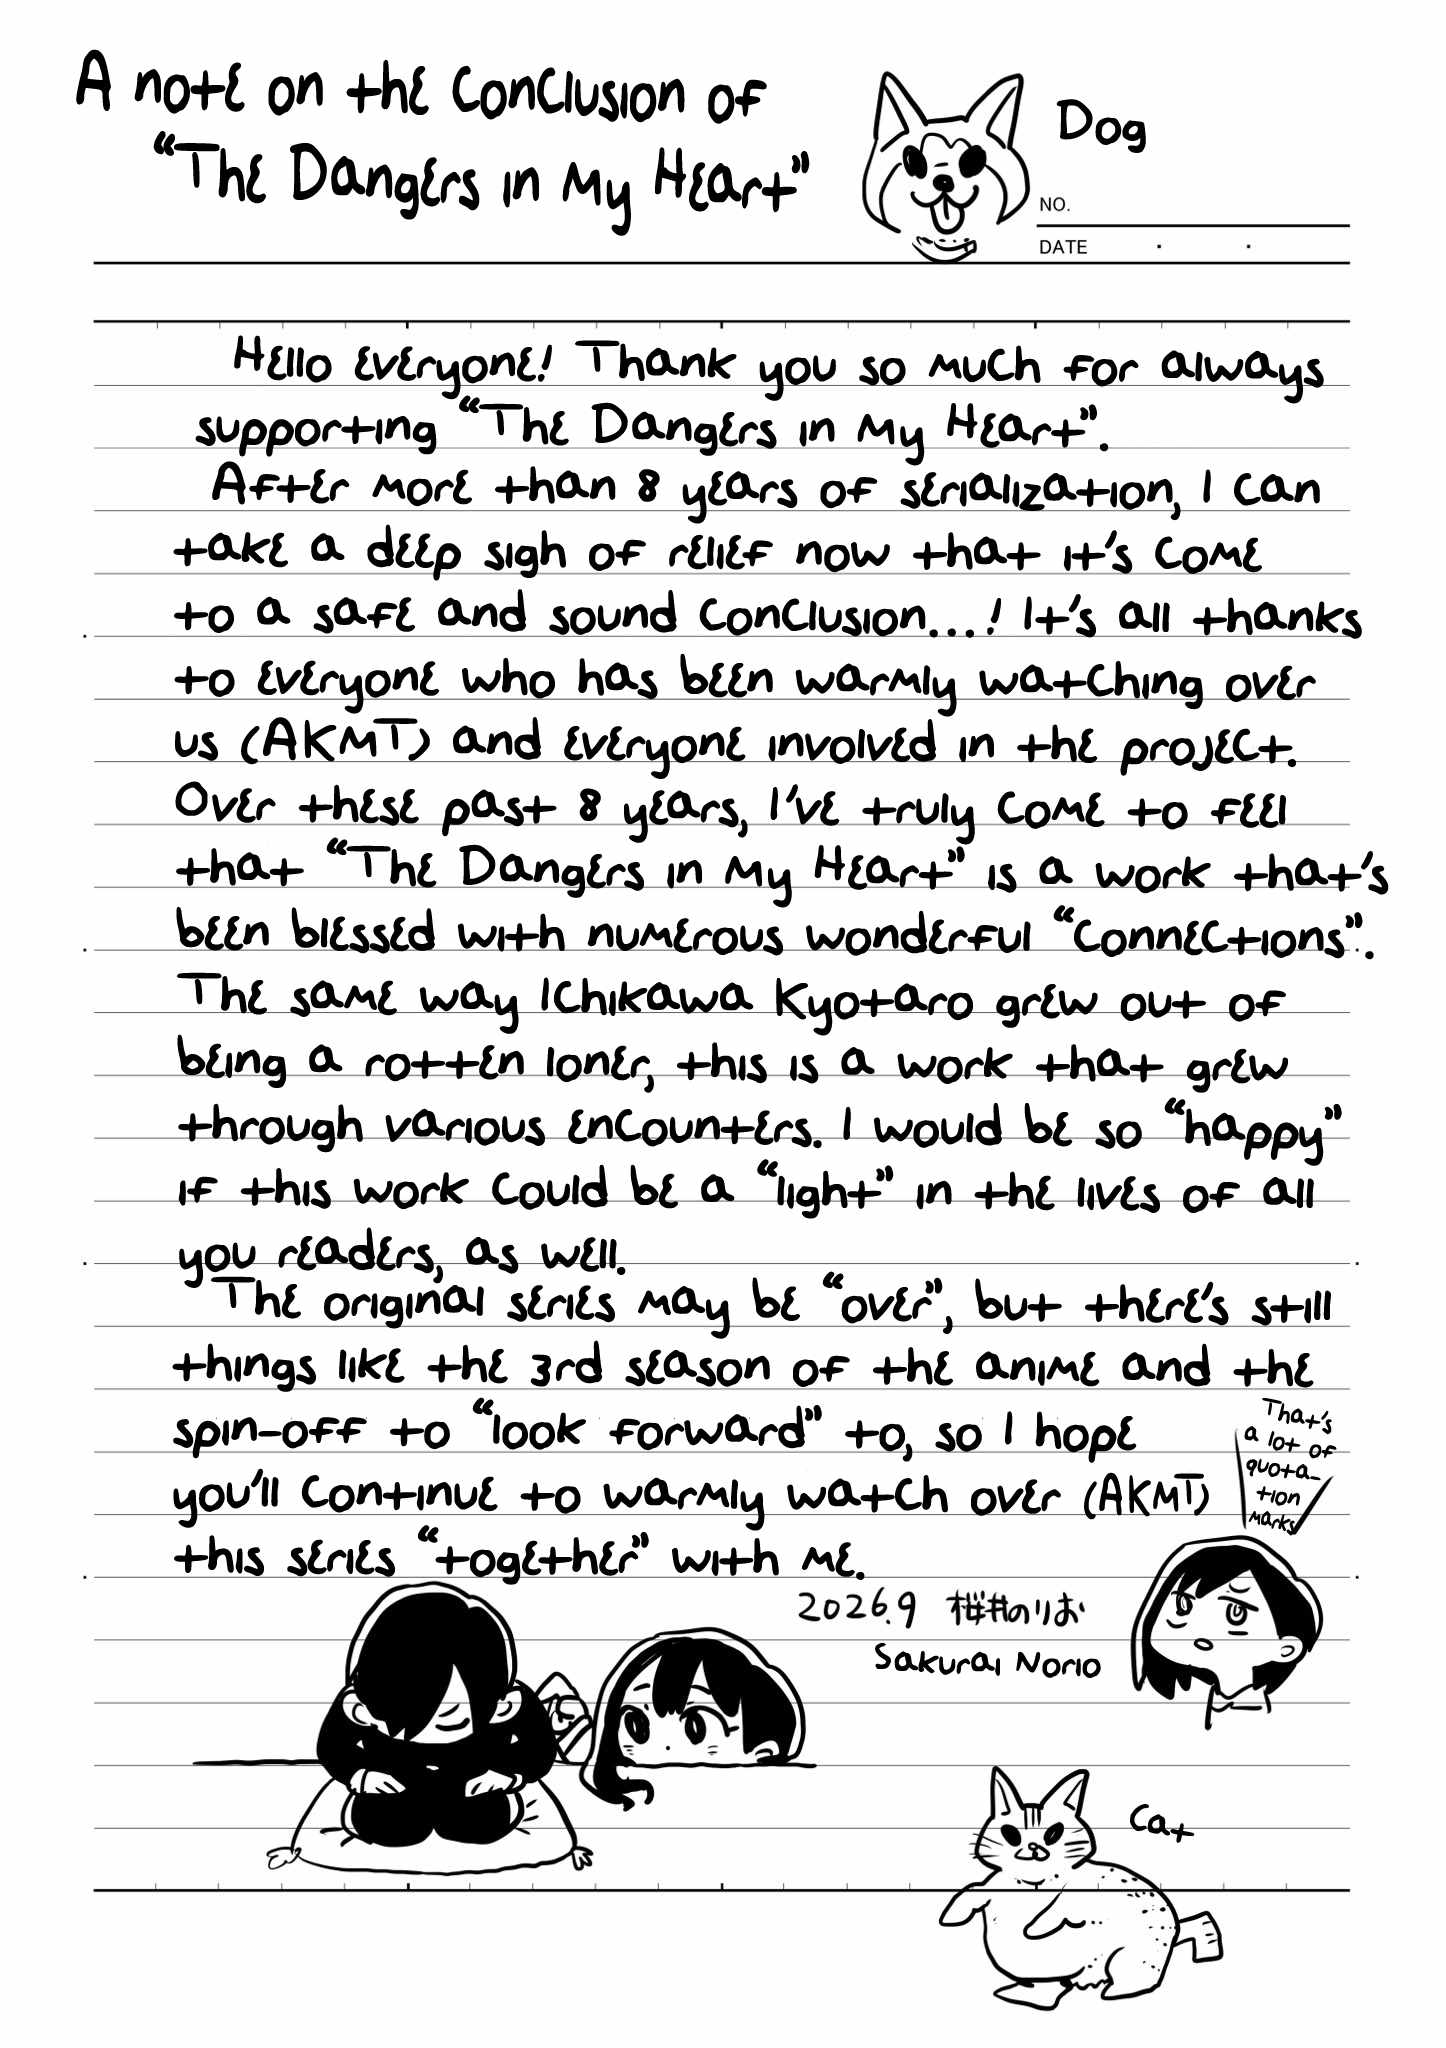 A note on the Conclusion of
"The Dangers in My Heart"
Dog
NO.
DATE . .
Hello everyone! Thank you so much for always
supporting "The Dangers in My Heart".
After more than 8 years of serialization, I can
take a deep sigh of relief now that it's come
to a safe and sound conclusion...! It's all thanks
to everyone who has been warmly watching over
us (AKMT) and everyone involved in the project.
Over these past 8 years, I've truly come to feel
that "The Dangers in My Heart" is a work that's
been blessed with numerous wonderful "connections".
The same way Ichikawa Kyotaro grew out of
being a rotten loner, this is a work that grew
through various encounters. I would be so "happy"
if this work could be a "light" in the lives of all
you readers, as well.
The original series may be "over", but there's still
things like the 3rd season of the anime and the
spin-off to "look forward" to, so I hope
you'll continue to warmly watch over (AKMT)
this series "together" with me.
That's
a lot of
quota-
tion
marks
2026.9 桜井のりお
Sakurai Norio
Cat